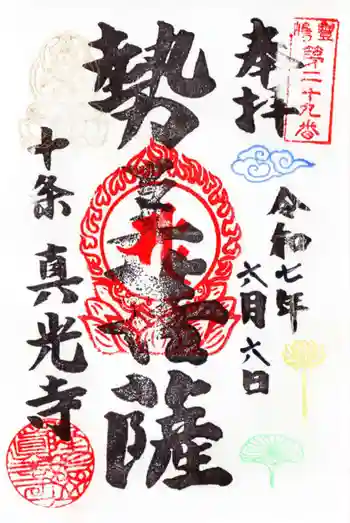 豐嶋第二十九番
奉拝
令和七年
六月六日
勢至菩薩
十条
真光寺